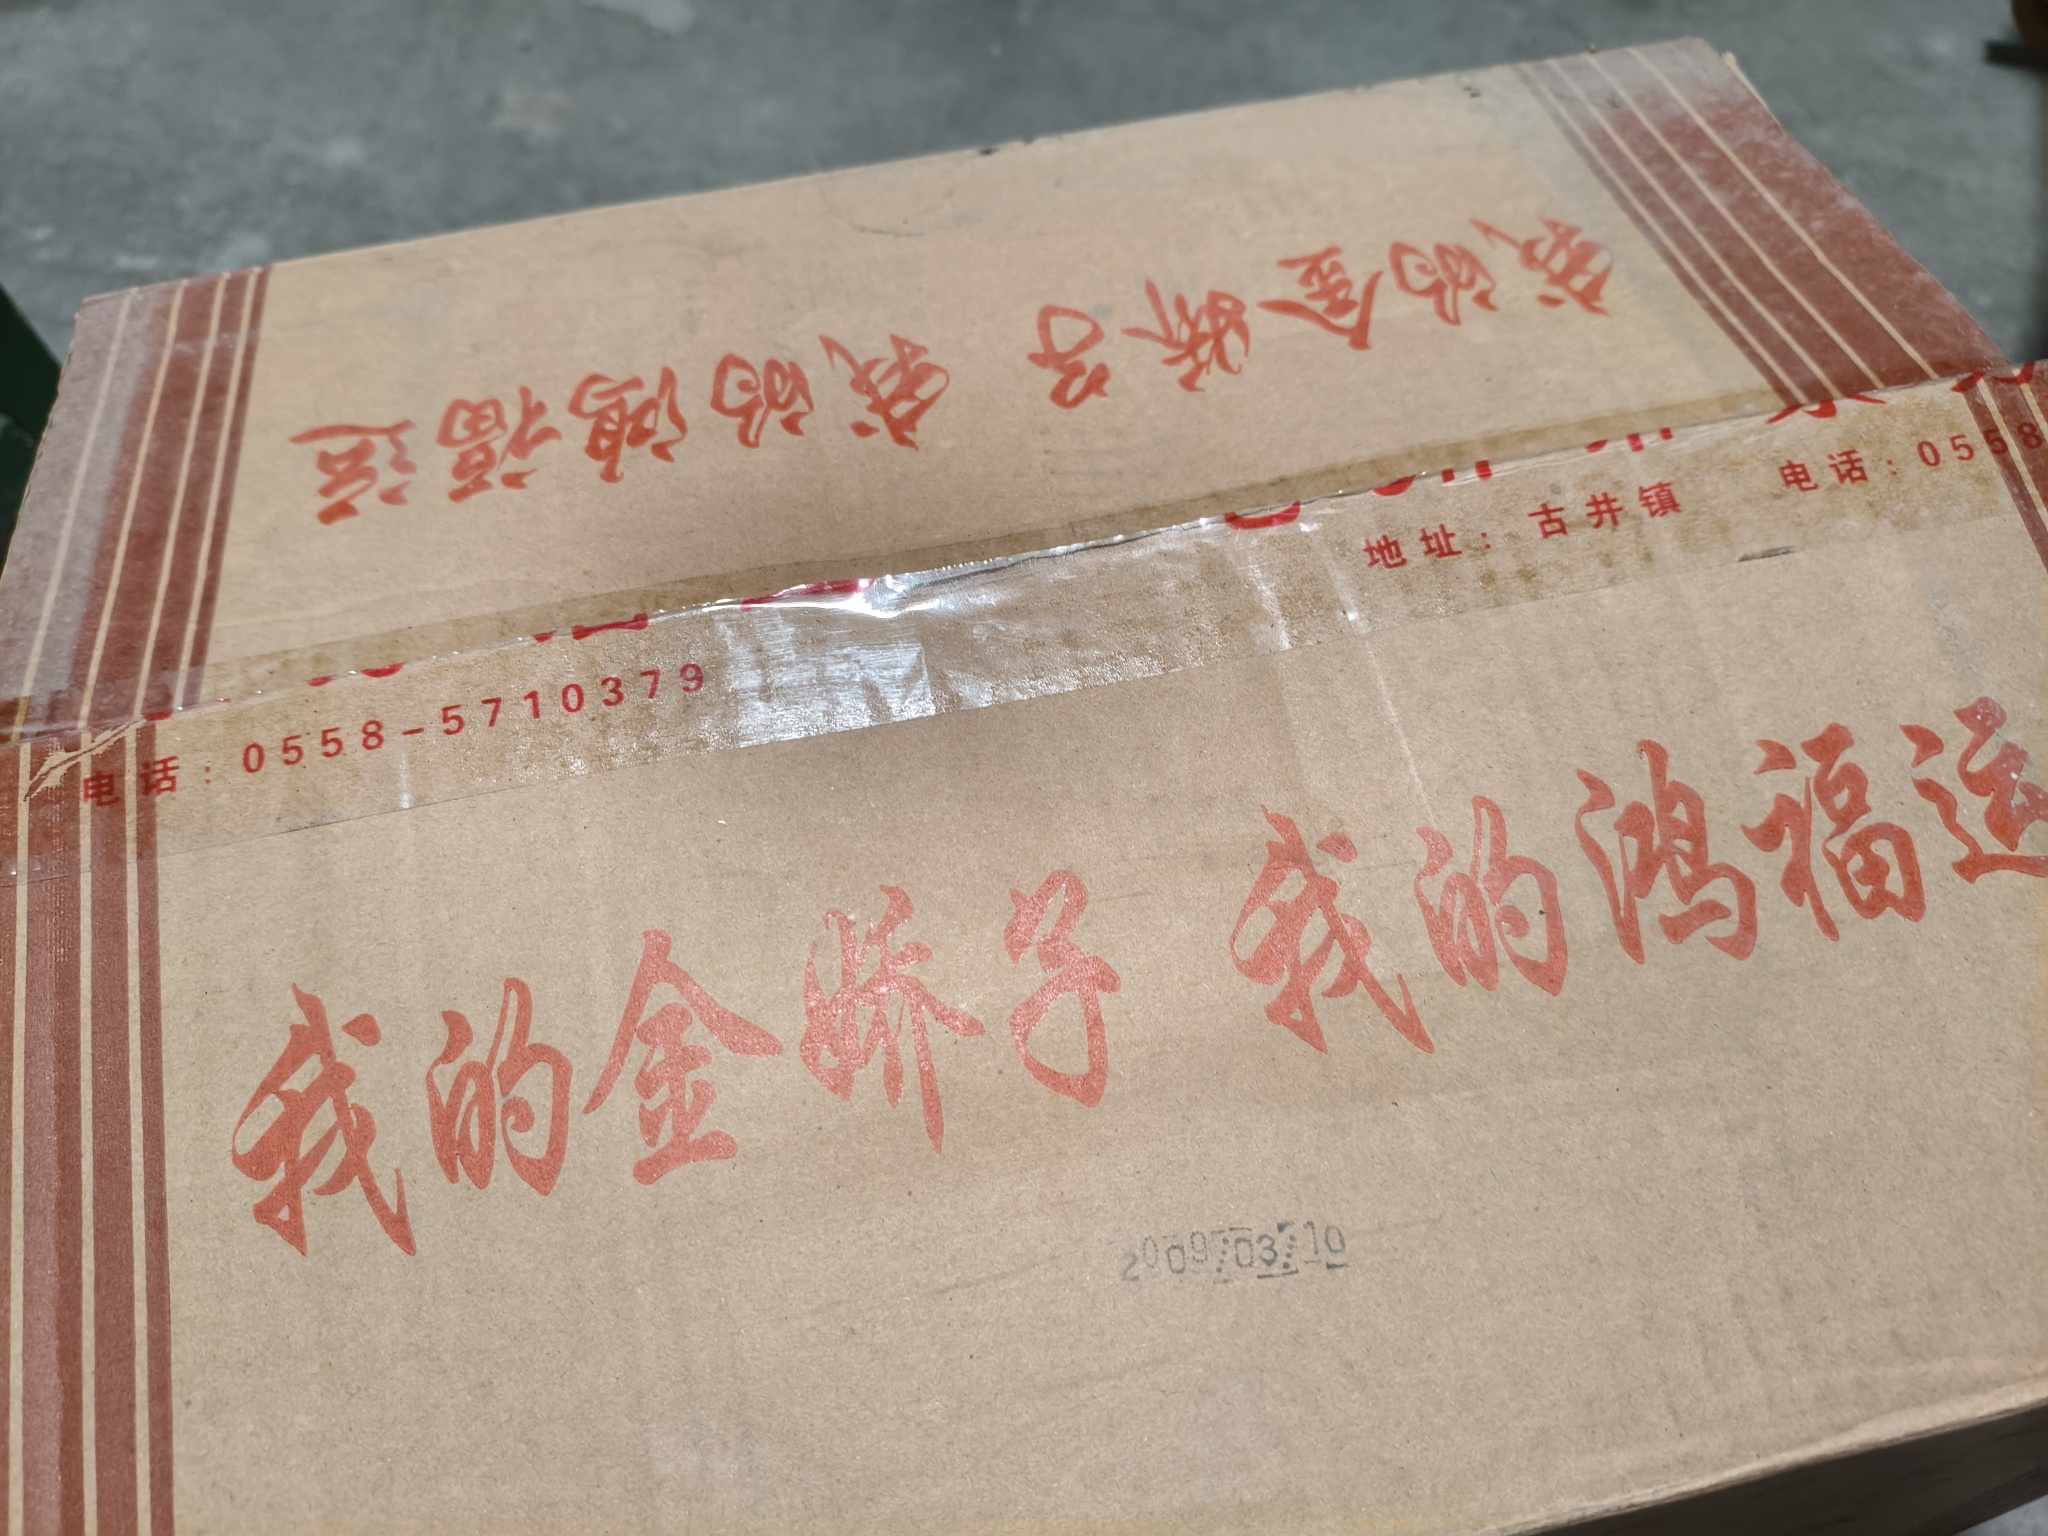 我的金娇子 我的鸿福运
地址：古井镇 电话：0558
电话：0558-5710379
我的金娇子 我的鸿福运
2009.03.10